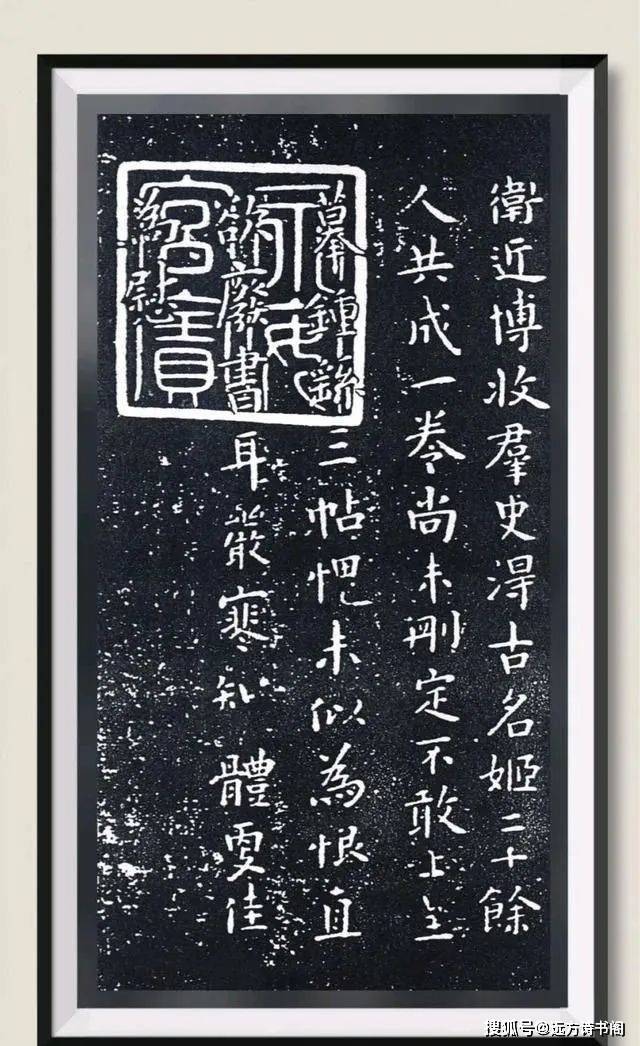 衛近博收羣史淂古名姬二十餘
人共成一卷尚未刪定不敢上
摹鍾繇三帖愧未似為恨直
欲廢書耳嚴寒知體更佳
為慰
搜狐号@远方诗书阁